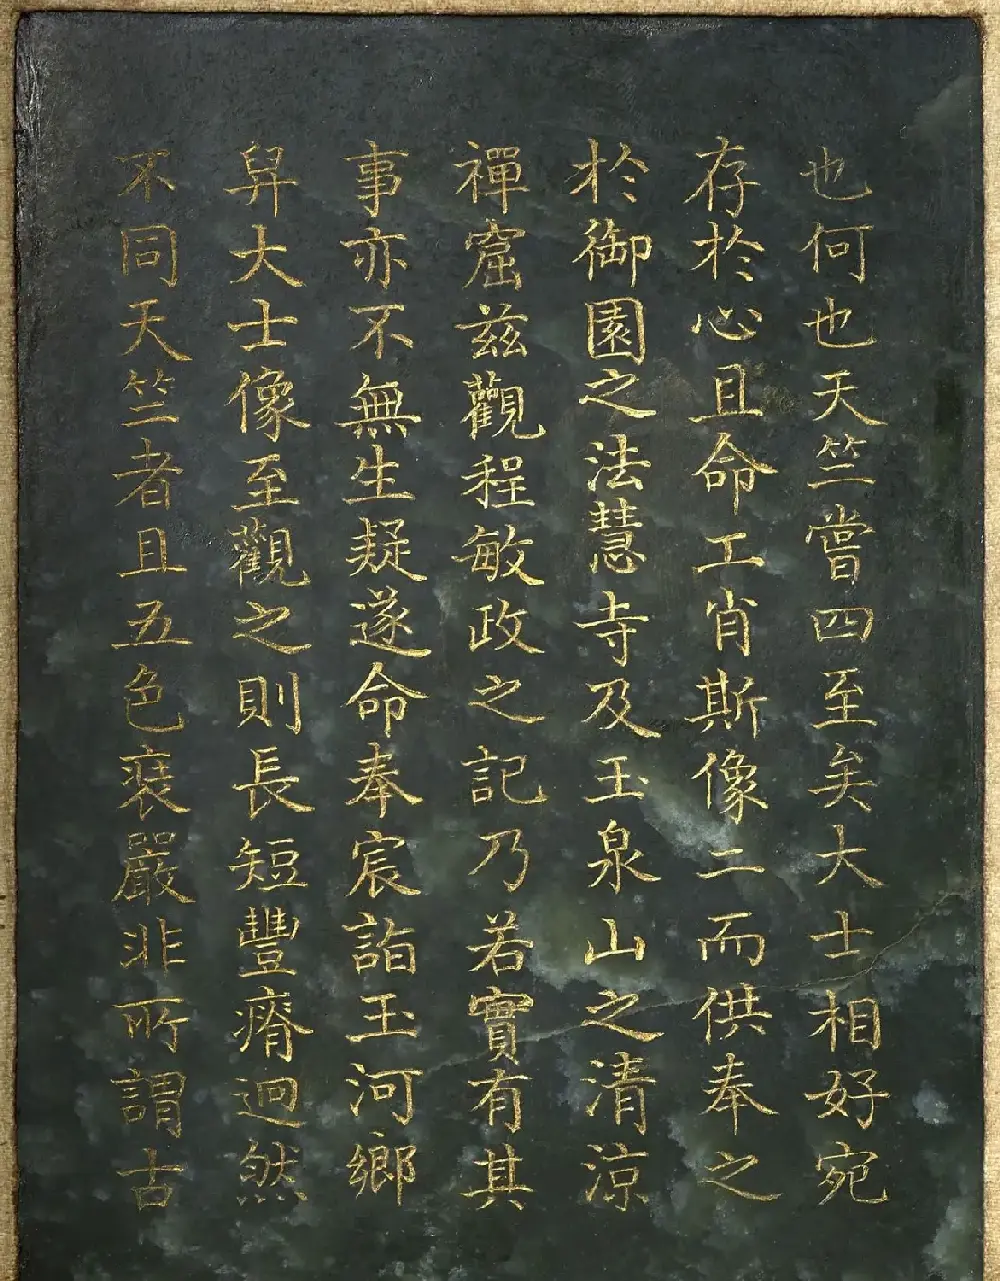 也何也天竺嘗四至矣大士相好宛
存於心且命工肖斯像二而供奉之
於御園之法慧寺及玉泉山之清涼
禪窟兹觀程敏政之記乃若實有其
事亦不無生疑遂命奉宸詣玉河鄉
舁大士像至觀之則長短豐瘠迥然
不同天竺者且五色裝嚴非所謂古